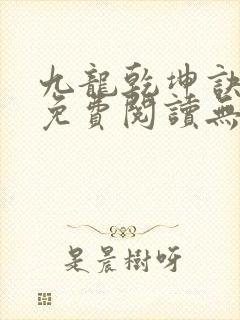 九龍乾坤訣
免費閱讀無
是晨樹呀